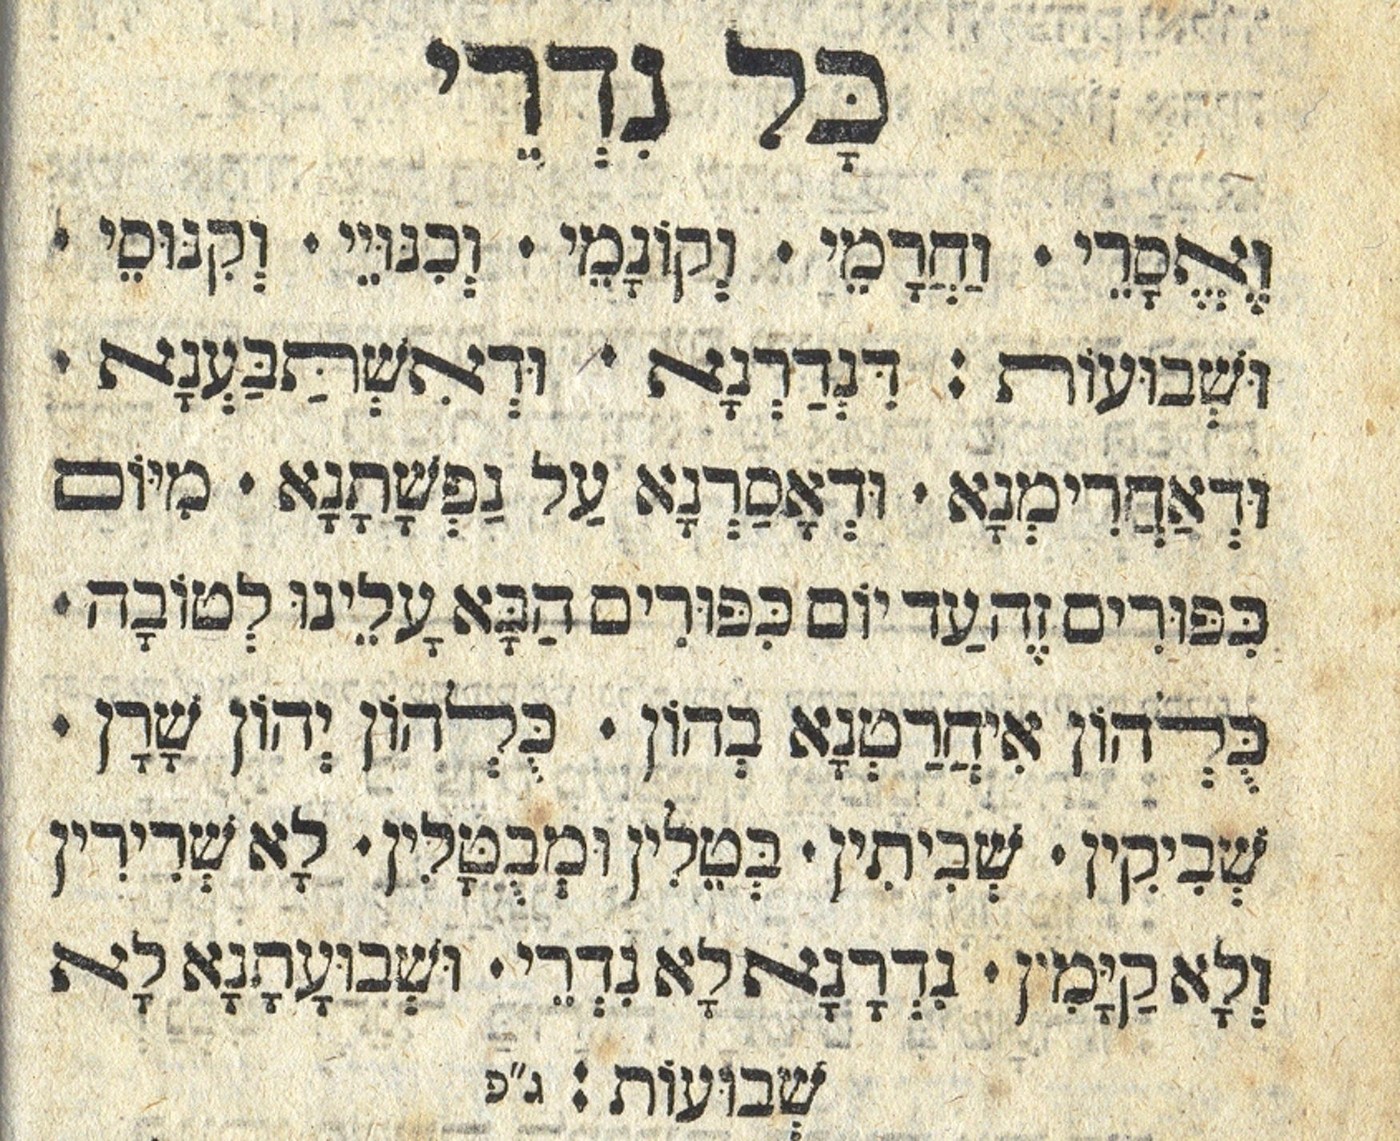 כָּל נִדְרֵי
וֶאֱסָרֵי · וַחֲרָמֵי · וְקוֹנָמֵי · וְכִנּוּיֵי · וְקִנּוּסֵי ·
וּשְׁבוּעוֹת : דִּנְדַרְנָא · וּדְאִשְׁתַּבַּעְנָא ·
וּדְאַחֲרִימְנָא · וּדְאָסַרְנָא עַל נַפְשָׁתָנָא · מִיּוֹם
כִּפּוּרִים זֶה עַד יוֹם כִּפּוּרִים הַבָּא עָלֵינוּ לְטוֹבָה ·
כֻּלְּהוֹן אִיחֲרַטְנָא בְהוֹן · כֻּלְּהוֹן יְהוֹן שָׁרָן ·
שְׁבִיקִין · שְׁבִיתִין · בְּטֵלִין וּמְבֻטָּלִין · לָא שְׁרִירִין
וְלָא קַיָּמִין · נִדְרָנָא לָא נִדְרֵי · וּשְׁבוּעָתָנָא לָא
שְׁבוּעוֹת : ג״פ